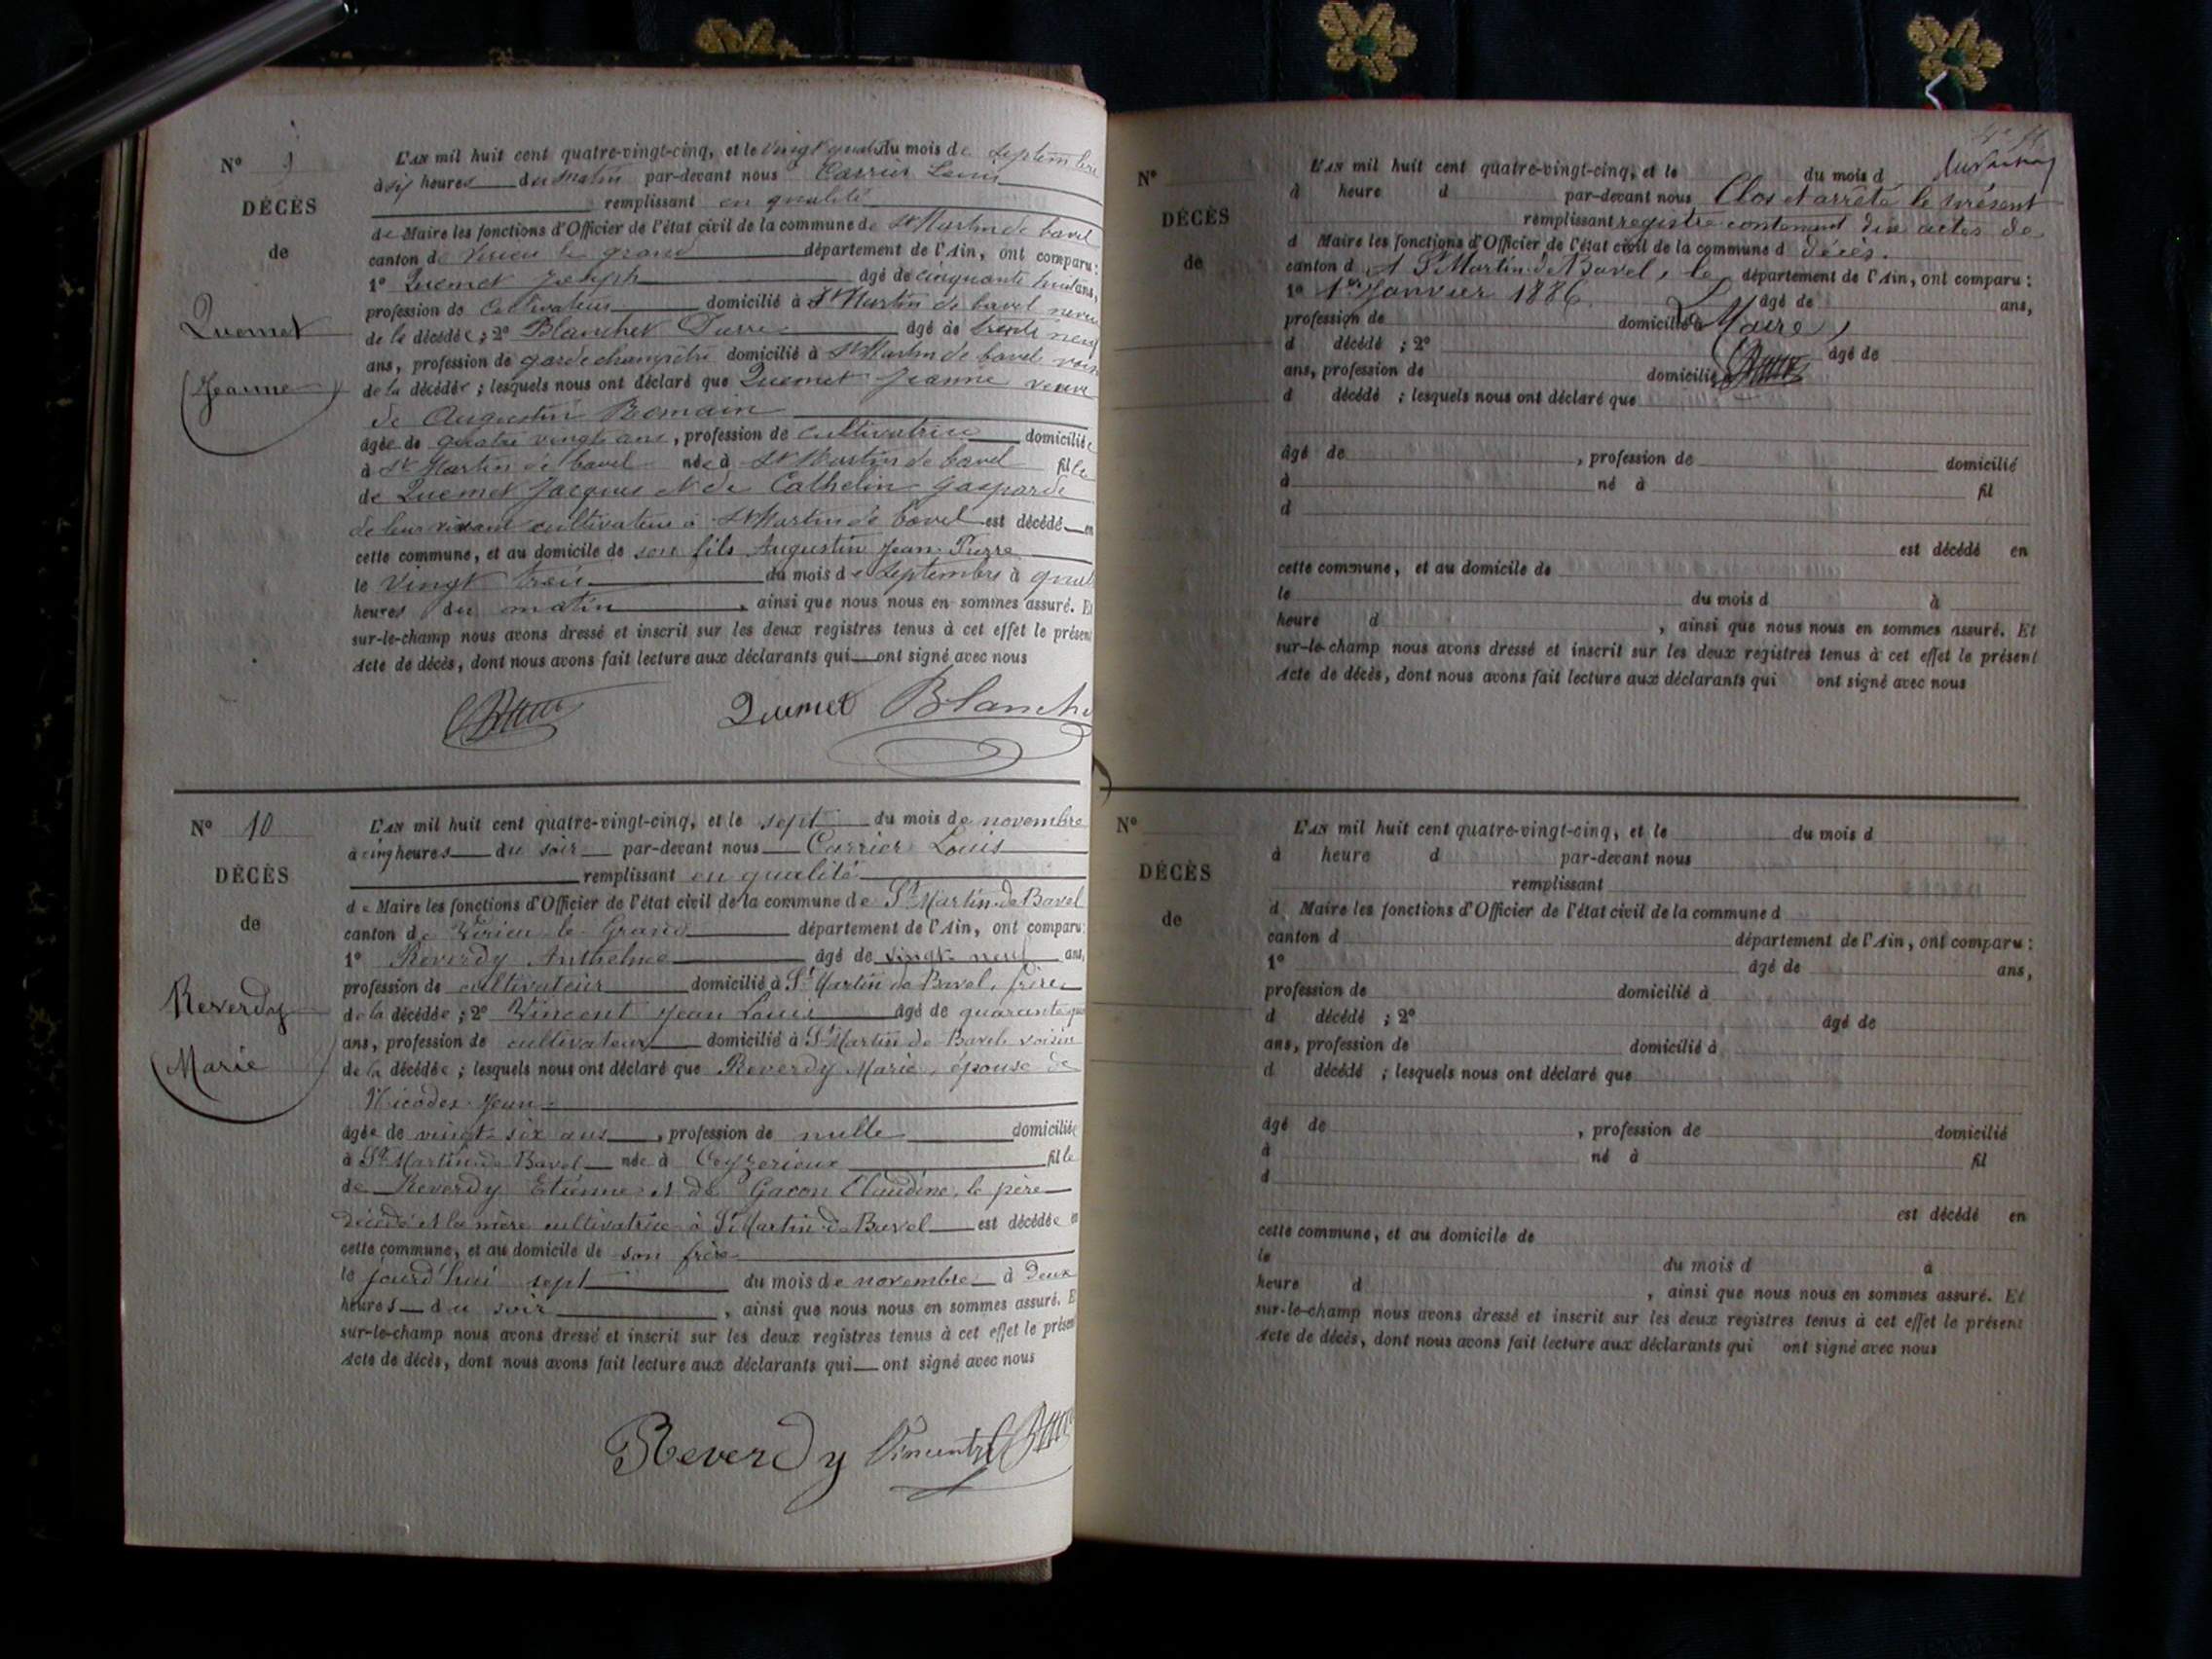 N° 9
DÉCÈS
de
Quemet
(Jeanne)
L'AN mil huit cent quatre-vingt-cinq, et le vingt quatre du mois de septembre
à six heures du matin par-devant nous Carrier Louis
remplissant en qualité
de Maire les fonctions d'Officier de l'état civil de la commune de St Martin de bavel
canton de Virieu le grand département de l'Ain, ont comparu :
1° Quemet Joseph âgé de cinquante huit ans,
profession de cultivateur domicilié à St Martin de bavel neveu
de la décédée ; 2° Blanchet Pierre âgé de trente neuf
ans, profession de garde champêtre domicilié à St Martin de bavel voisin
de la décédée ; lesquels nous ont déclaré que Quemet Jeanne veuve
de Augustin Romain
âgée de quatre vingts ans, profession de cultivatrice domiciliée
à St Martin de bavel née à St Martin de bavel fille
de Quemet Jacques et de Cathelin Gasparde
de leur vivant cultivateurs à St Martin de bavel est décédé en
cette commune, et au domicile de son fils Augustin Jean Pierre
le vingt trois du mois de septembre à
heures du matin, ainsi que nous nous en sommes assuré. Et
sur-le-champ nous avons dressé et inscrit sur les deux registres tenus à cet effet le présent
Acte de décès, dont nous avons fait lecture aux déclarants qui ont signé avec nous
Quemet Blanchet
N° 10
DÉCÈS
de
Reverdy
(Marie)
L'AN mil huit cent quatre-vingt-cinq, et le sept du mois de novembre
à cinq heures du soir par-devant nous Carrier Louis
remplissant en qualité
de Maire les fonctions d'Officier de l'état civil de la commune de St Martin-de-Bavel
canton de Virieu-le-Grand département de l'Ain, ont comparu :
1° Reverdy Anthelme âgé de vingt-neuf ans,
profession de cultivateur domicilié à St Martin de Bavel, frère
de la décédée ; 2° Vincent Jean Louis âgé de quarante
ans, profession de cultivateur domicilié à St Martin de Bavel voisin
de la décédée ; lesquels nous ont déclaré que Reverdy Marie, épouse de
Nicodex Jean
âgée de vingt-six ans, profession de nulle domiciliée
à St Martin-de-Bavel née à Ceyzerieux fille
de Reverdy Etienne et de Gacon Claudine, le père
décédé et la mère cultivatrice à St Martin-de-Bavel est décédée en
cette commune, et au domicile de son frère
le jourd'hui sept du mois de novembre à deux
heures du soir, ainsi que nous nous en sommes assuré. Et
sur-le-champ nous avons dressé et inscrit sur les deux registres tenus à cet effet le présent
Acte de décès, dont nous avons fait lecture aux déclarants qui ont signé avec nous
Reverdy Vincent
N°
DÉCÈS
de
L'AN mil huit cent quatre-vingt-cinq, et le du mois d
à heure d par-devant nous Clos et arrêté le présent
remplissant registre contenant dix actes de
d Maire les fonctions d'Officier de l'état civil de la commune d décès.
canton d A St Martin-de-Bavel, le département de l'Ain, ont comparu :
1° 1er Janvier 1886. âgé de ans,
profession de domicilié à Le Maire,
d décédé ; 2° âgé de
ans, profession de domicilié à
d décédé ; lesquels nous ont déclaré que
âgé de , profession de domicilié
à né à fil
d
est décédé en
cette commune, et au domicile de
le du mois d à
heure d , ainsi que nous nous en sommes assuré. Et
sur-le-champ nous avons dressé et inscrit sur les deux registres tenus à cet effet le présent
Acte de décès, dont nous avons fait lecture aux déclarants qui ont signé avec nous
N°
DÉCÈS
de
L'AN mil huit cent quatre-vingt-cinq, et le du mois d
à heure d par-devant nous
remplissant
d Maire les fonctions d'Officier de l'état civil de la commune d
canton d département de l'Ain, ont comparu :
1° âgé de ans,
profession de domicilié à
d décédé ; 2° âgé de
ans, profession de domicilié à
d décédé ; lesquels nous ont déclaré que
âgé de , profession de domicilié
à né à fil
d
est décédé en
cette commune, et au domicile de
le du mois d à
heure d , ainsi que nous nous en sommes assuré. Et
sur-le-champ nous avons dressé et inscrit sur les deux registres tenus à cet effet le présent
Acte de décès, dont nous avons fait lecture aux déclarants qui ont signé avec nous